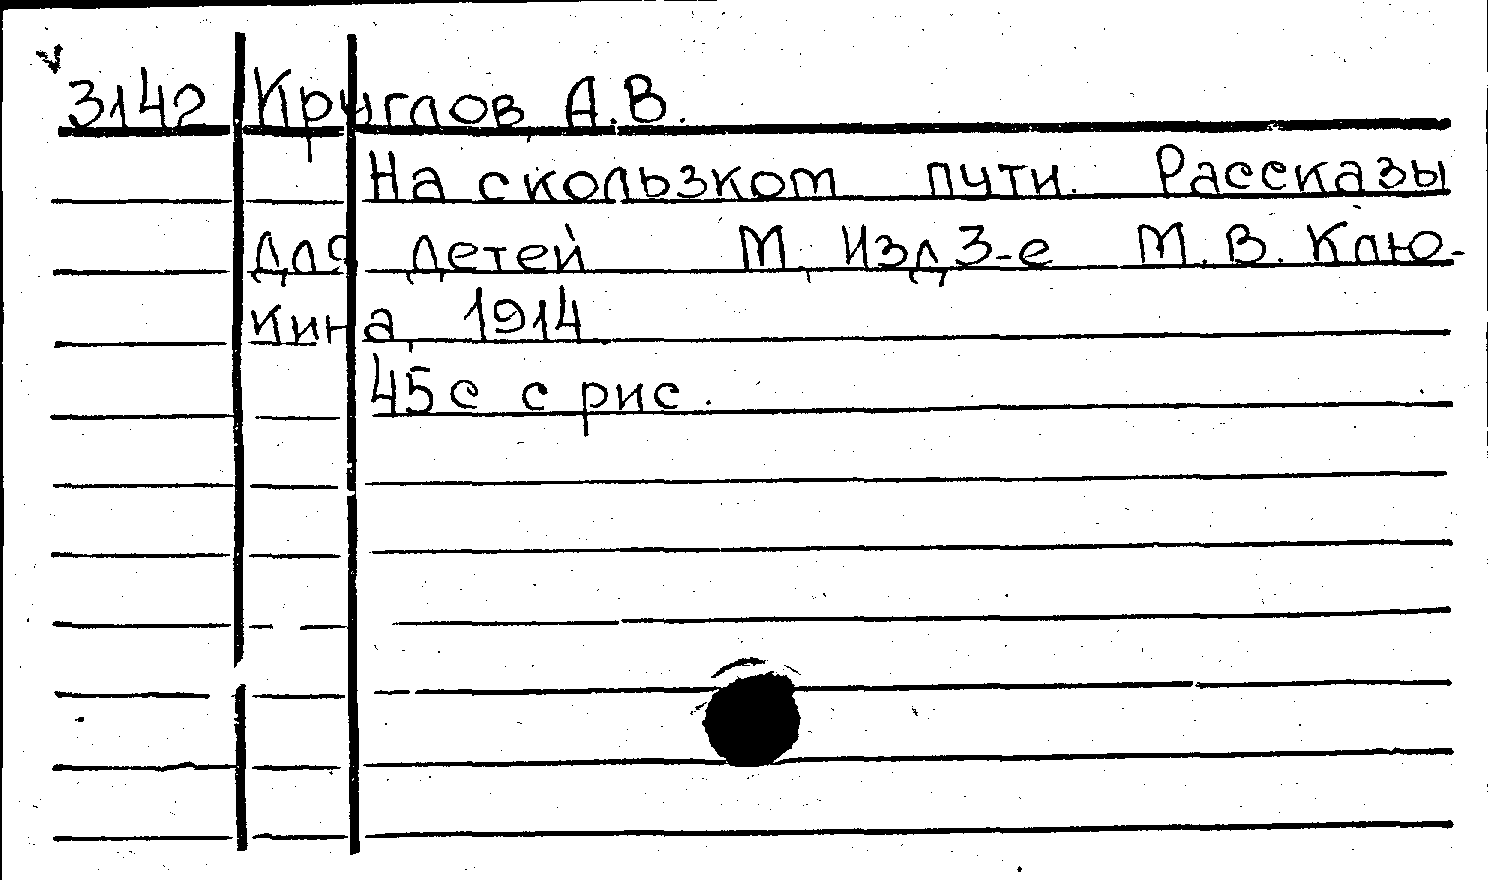 3142 Круглов, А.В.
На скользком пути. Рассказы
для детей М., Изд. 3-е М.В. Клю-
кина, 1914
45с с рис.